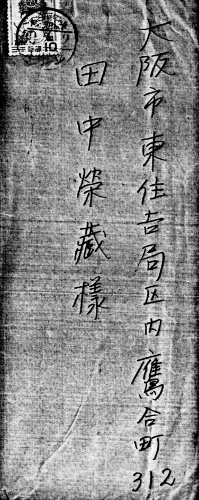 大阪市東住吉局区内鷹合町312
田中榮藏様